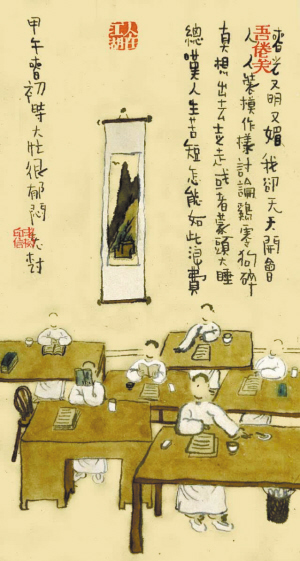 春光又明又媚我卻天天開會
人人裝模作樣討論鷄零狗碎
真想出去走走或者蒙頭大睡
總嘆人生苦短怎能如此浪費
甲午春初大忙很郁悶老樹
吾倦矣
人在江湖